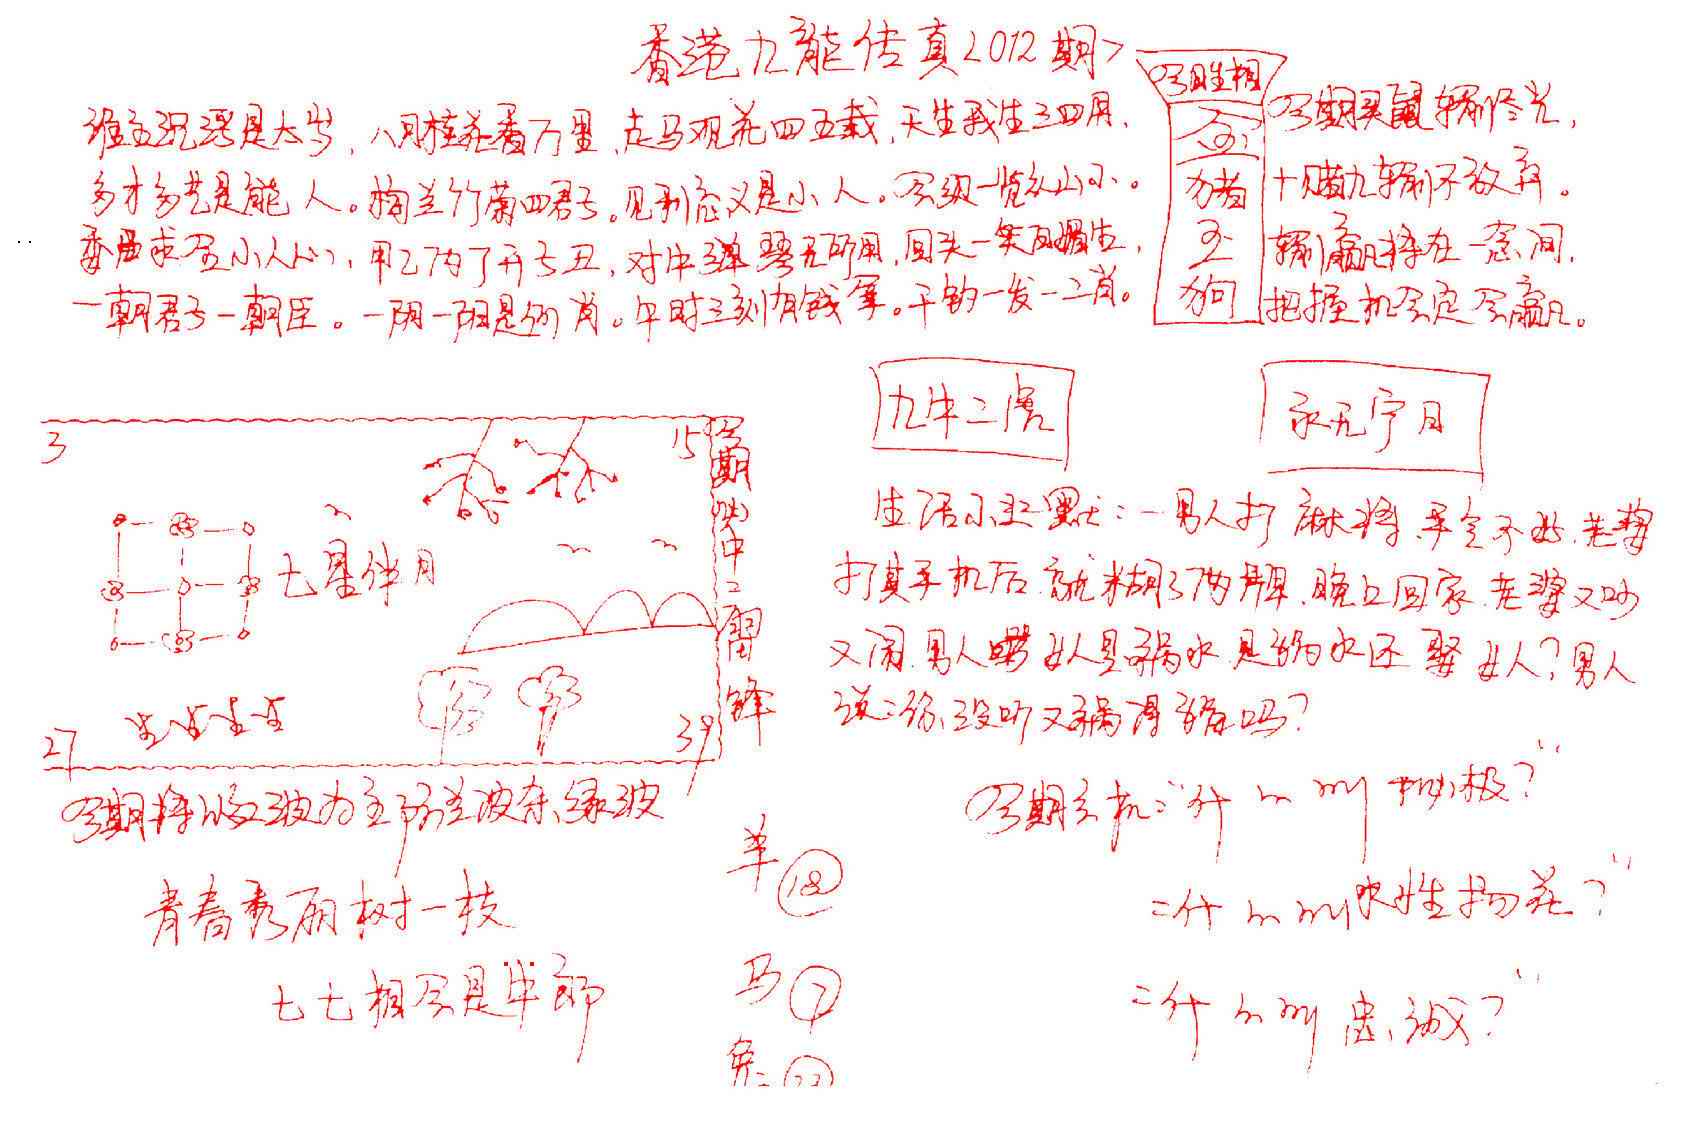 香港九龍传真2012期
今日生相
谁主沉浮是大岁，八月桂花香万里，走马观花四五载，天生我生三四用，
多才多艺是能人。梅兰竹菊四君子。见利忘义是小人。会级一览众山小。
委曲求全小人心，甲乙丙丁开子丑，对牛弹琴无所用，回头一笑百媚生，
一朝君子一朝臣。一阴一阳是的肖。午时三刻有钱拿。千钧一发一二肖。
猪
狗
今期买鼠输修光，
十赌九输不放弃。
输赢将在一念间，
把握机会定会赢。
九牛二虎
永无宁日
3
15
七星伴月
27
39
今期中二雷锋
生活小幽默：一男人打麻将手气不好，老婆
打其手机后就糊了两牌，晚上回家，老婆又吵
又闹，男人骂女人是祸水，是祸水还娶女人？男人
说：你没听又祸得福吗？
今期将以红波为主防兰波杂绿波
青春秀丽树一枝
七七相会是牛郎
羊 18
马 7
兔 23
今期玄机："什么 极？"
"什么 水性扬花？"
"什么 忠诚？"